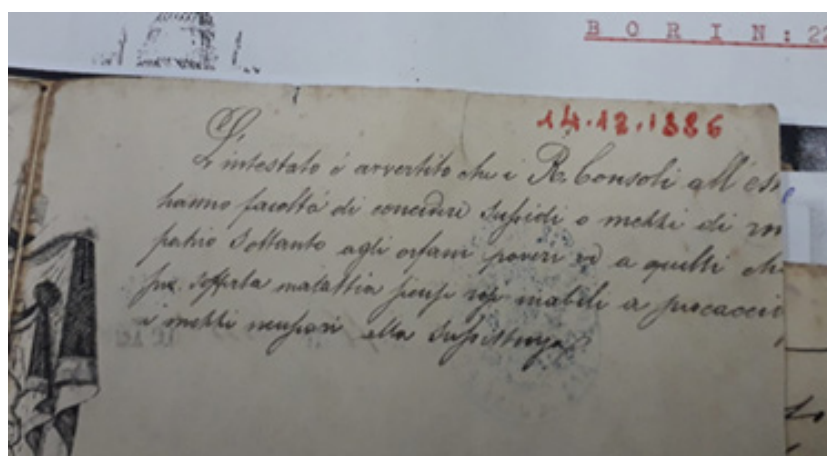 BORIN: 22
14.12.1886
L'intestato é avvertito che i R. Consoli all'es
hanno facoltá di concedere sussidi o mezzi di
patrio soltanto agli orfani poveri ed a quelli ch
per sofferta malattia inabili a procacci
i mezzi necessari alla sussistenza